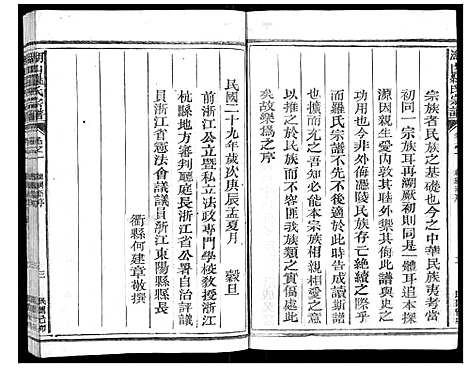 宗族者民族之基礎也今之中華民族夷考當
初同一宗族耳再溯厥初尚是一體耳追本探
源因親生愛內敦其睦外禦其侮此譜與史之
功用也今非外侮憑陵民族存亡絶續之際乎
而羅氏宗譜不先不後適於此時告成讀斯譜
也擴而充之吾知必能本宗族相親相愛之意
以推之於民族而不容匪我族類之實偪處此
矣故樂爲之序
民國二十九年歲次庚辰孟夏月 穀旦
前浙江公立暨私立法政專門學校教授浙江
杭縣地方審判廳庭長浙江省公署自治評議
員浙江省憲法會議議員浙江東陽縣縣長
衢縣何建章敬撰
三